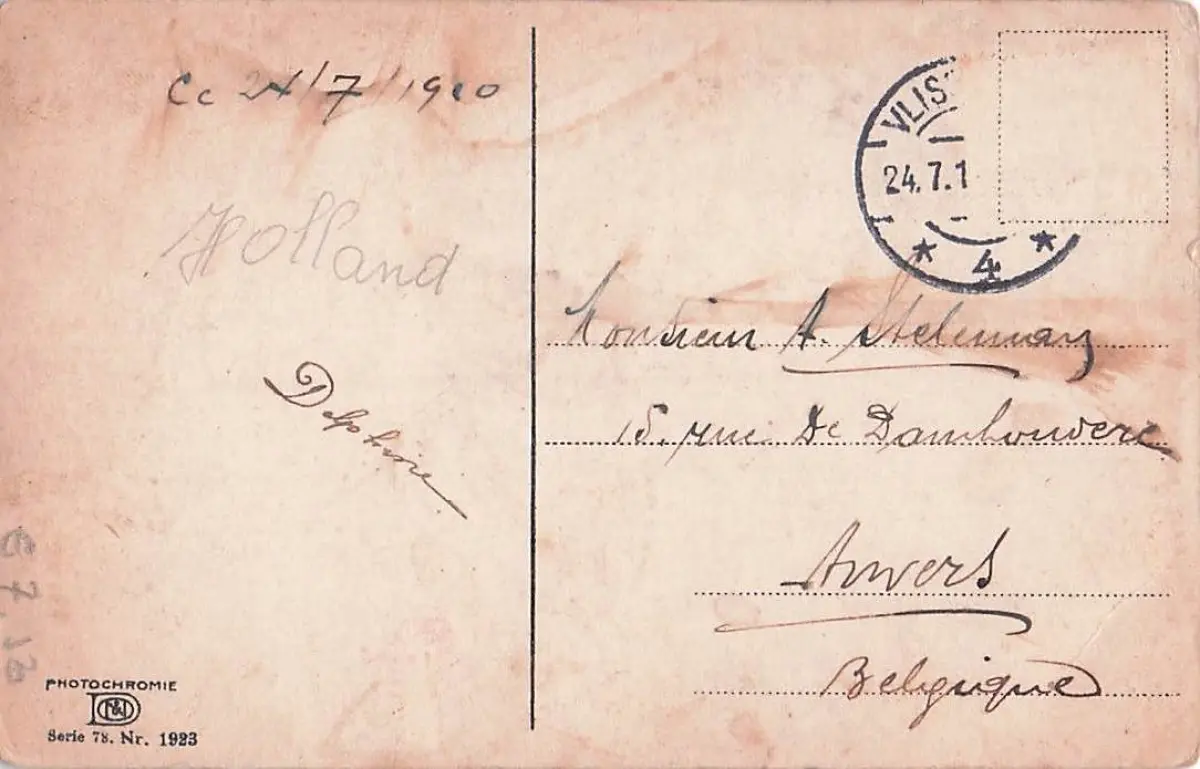 Ce 24/7/1910
Holland
Delphine
€ 7,13
PHOTOCHROMIE
Serie 78. Nr. 1923
VLIS
24.7.1
* 4 *
Monsieur A.
15, rue De Damhouvere
Anvers
Belgique